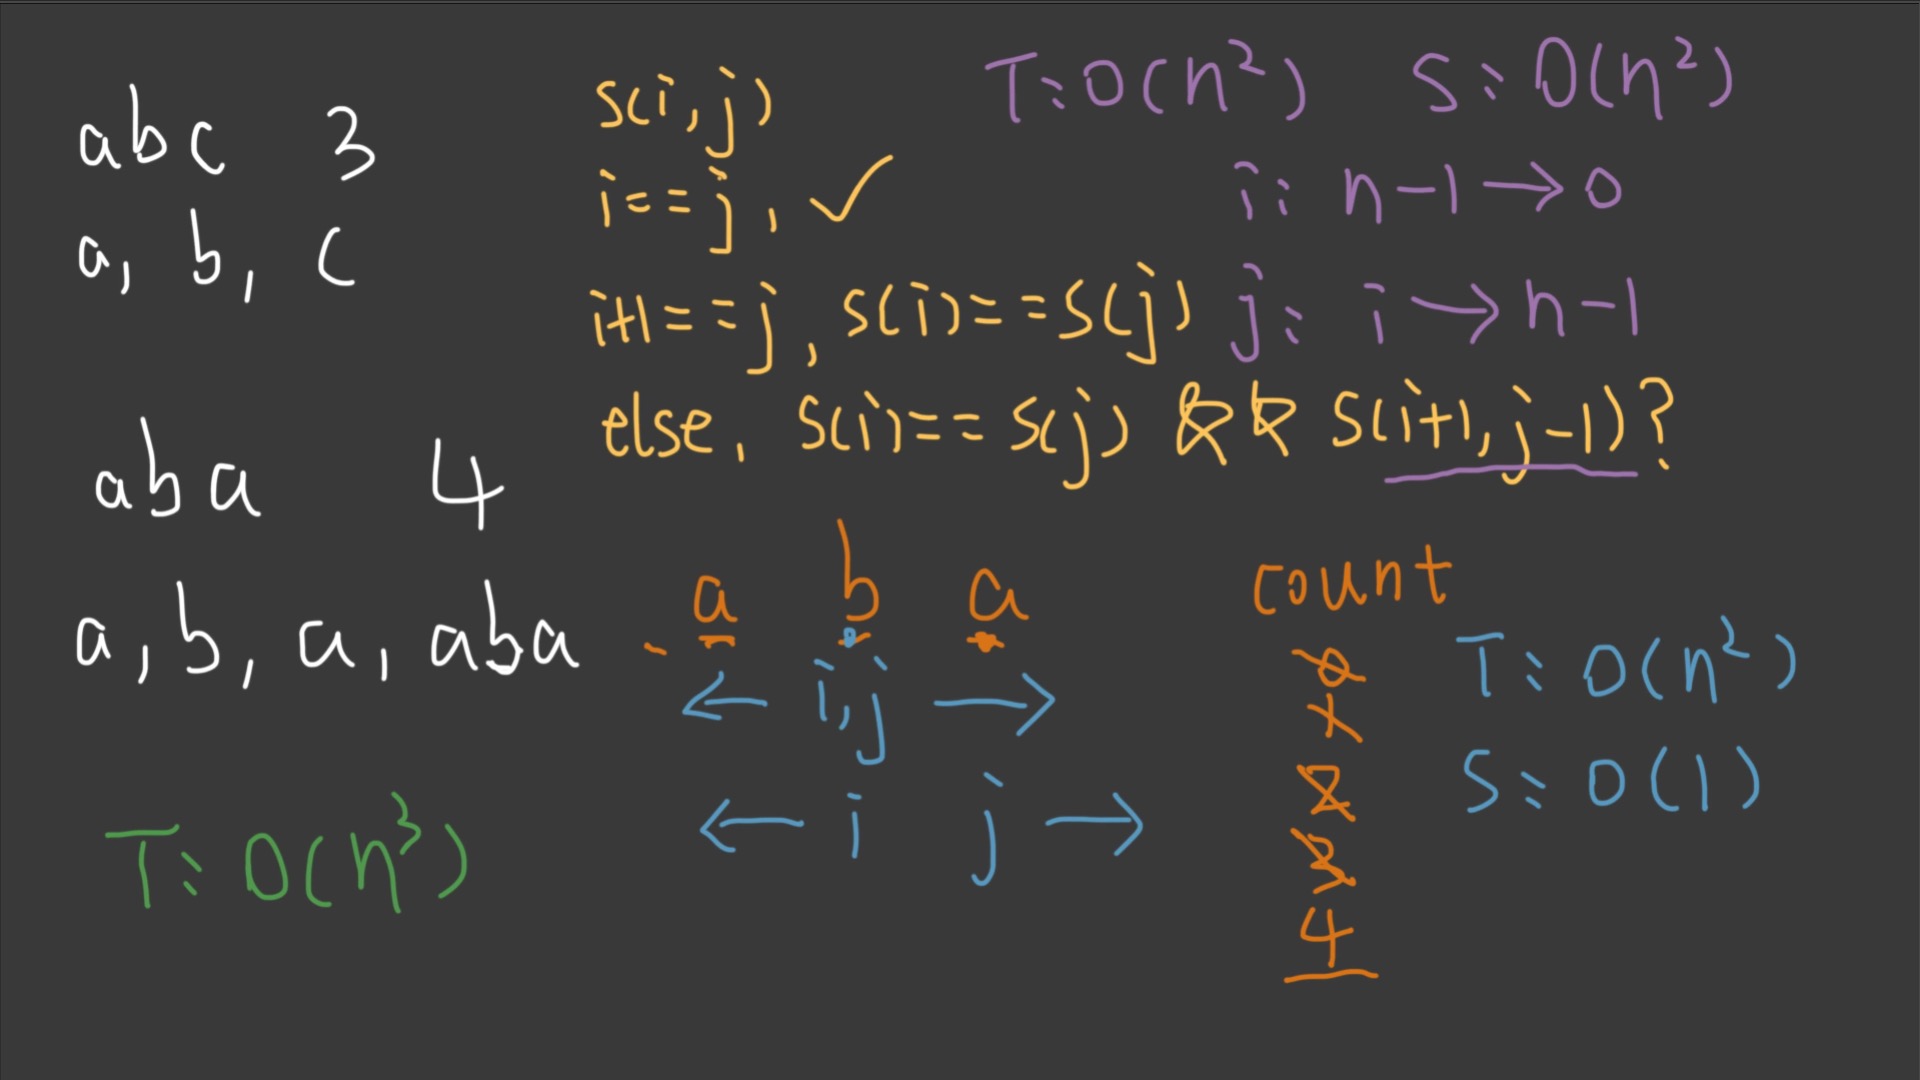 abc 3
a, b, c
aba 4
a, b, a, aba
T: O(n³)
s(i,j)
i==j, ✓
i+1==j, s(i)==s(j)
else, s(i)==s(j) && s(i+1,j-1)?
T:O(n²) S:O(n²)
i: n-1→0
j: i→n-1
a b a
← i,j →
← i j →
count
0
1
2
3
4
T: O(n²)
S: O(1)